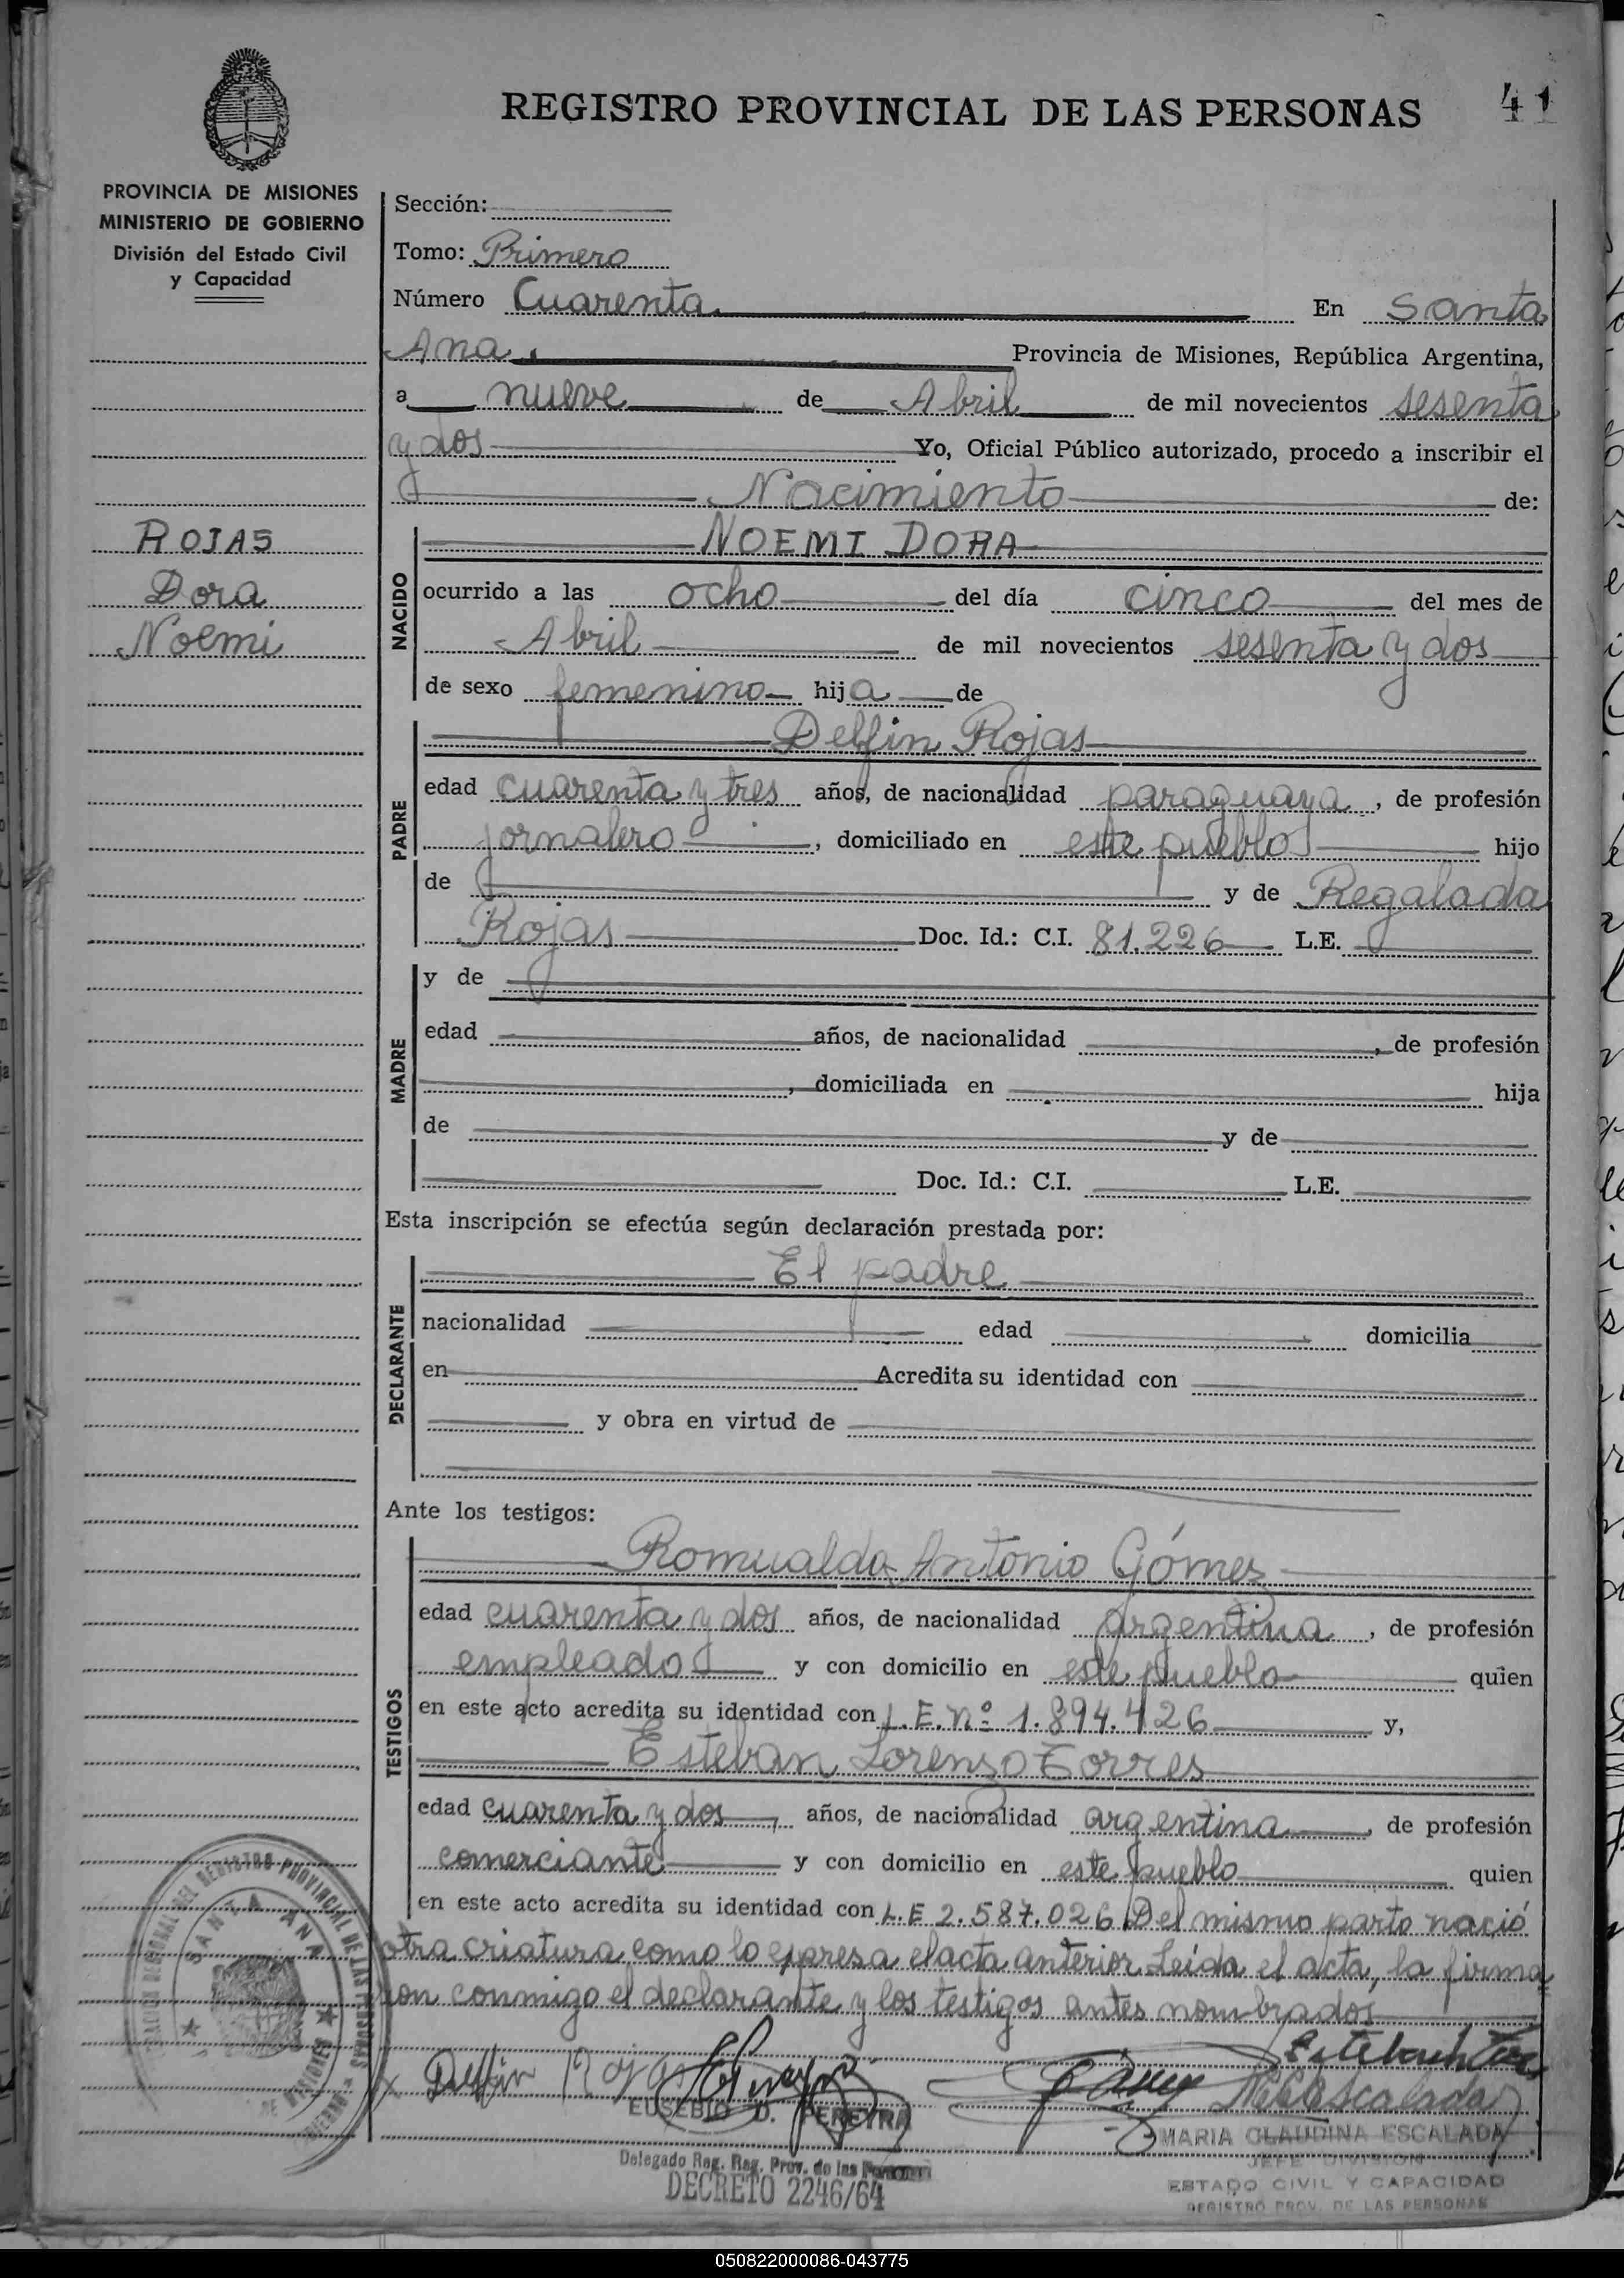 41
REGISTRO PROVINCIAL DE LAS PERSONAS
PROVINCIA DE MISIONES
MINISTERIO DE GOBIERNO
División del Estado Civil
y Capacidad
Sección:
Tomo: Primero
Número Cuarenta En Santa
Ana Provincia de Misiones, República Argentina,
a nueve de Abril de mil novecientos sesenta
y dos Yo, Oficial Público autorizado, procedo a inscribir el
Nacimiento de:
ROJAS
Dora
Noemi
NACIDO
NOEMI DORA
ocurrido a las ocho del día cinco del mes de
Abril de mil novecientos sesenta y dos
de sexo femenino hija de
PADRE
Delfin Rojas
edad cuarenta y tres años, de nacionalidad paraguaya, de profesión
jornalero, domiciliado en este pueblo hijo
de y de Regalada
Rojas Doc. Id.: C.I. 81.226 L.E.
MADRE
y de
edad años, de nacionalidad , de profesión
, domiciliada en hija
de y de
Doc. Id.: C.I. L.E.
Esta inscripción se efectúa según declaración prestada por:
DECLARANTE
El padre
nacionalidad edad domicilia
en Acredita su identidad con
y obra en virtud de
Ante los testigos:
TESTIGOS
Romualdo Antonio Gómez
edad cuarenta y dos años, de nacionalidad argentina, de profesión
empleado y con domicilio en este pueblo quien
en este acto acredita su identidad con L.E. nº 1.894.426 y,
Esteban Lorenzo Torres
edad cuarenta y dos, años, de nacionalidad argentina, de profesión
comerciante y con domicilio en este pueblo quien
en este acto acredita su identidad con L.E 2.587.026 Del mismo parto nació
otra criatura como lo expresa el acta anterior Leída el acta, la firma
ron conmigo el declarante y los testigos antes nombrados
SANTA ANA
Delfin Rojas
EUSEBIO D. PEREYRA
Delegado Reg. Reg. Prov. de las
DECRETO 2246/64
MARIA CLAUDINA ESCALADA
JEFE DIVISION
ESTADO CIVIL Y CAPACIDAD
REGISTRO PROV. DE LAS PERSONAS
050822000086-043775